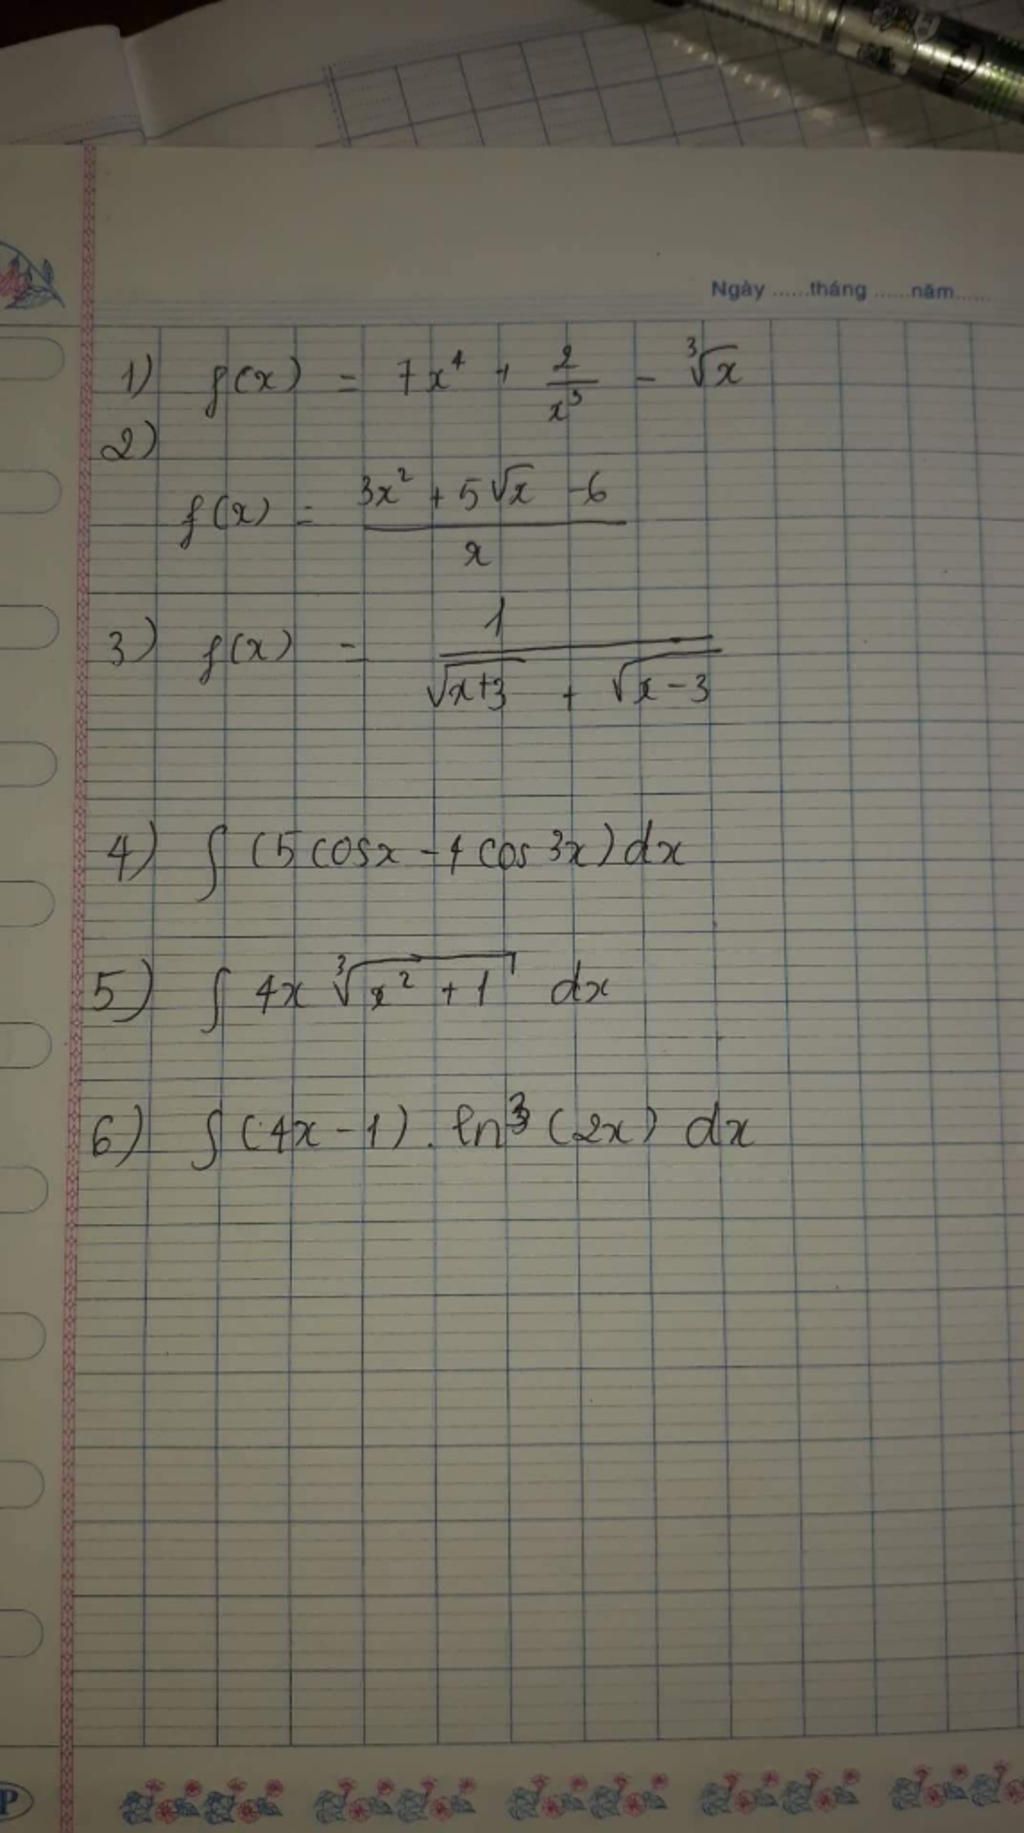 Ngày ......tháng ......năm......
1) f(x) = 7x⁴ + 2/x³ - ∛x
2)
f(x) = (3x² + 5√x - 6)/x
3) f(x) = 1/(√(x+3) + √(x-3))
4) ∫ (5cosx - 4cos3x)dx
5) ∫ 4x ∛(x² + 1) dx
6) ∫ (4x - 1) . ln³ (2x) dx
P